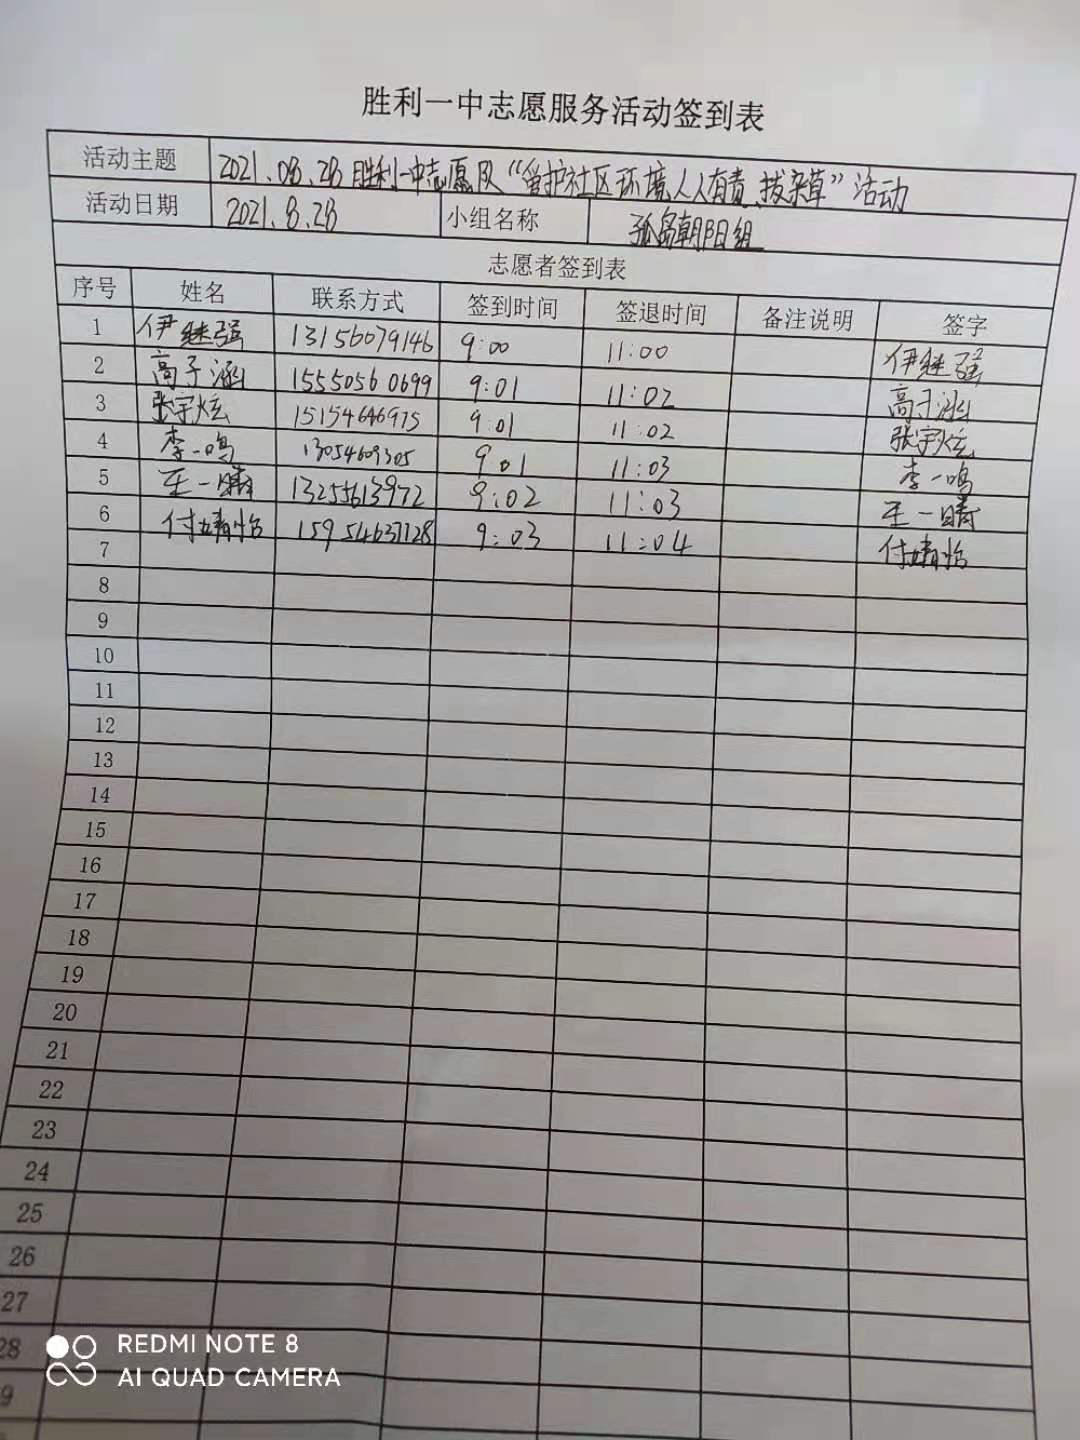 胜利一中志愿服务活动签到表
活动主题 2021.08.28胜利一中志愿队“爱护社区环境,人人有责、拔杂草”活动
活动日期 2021.8.28 小组名称 孤岛朝阳组
志愿者签到表
序号 姓名 联系方式 签到时间 签退时间 备注说明 签字
1 伊继强 13156079146 9:00 11:00 伊继强
2 高子涵 15550560699 9:01 11:02 高子涵
3 张宇炫 15154646975 9:01 11:02 张宇炫
4 李一鸣 13054609305 9:01 11:03 李一鸣
5 王一晴 13255613972 9:02 11:03 王一晴
6 付婧怡 15954637128 9:03 11:04 付婧怡
7
8
9
10
11
12
13
14
15
16
17
18
19
20
21
22
23
24
25
26
27
28
9
REDMI NOTE 8
AI QUAD CAMERA